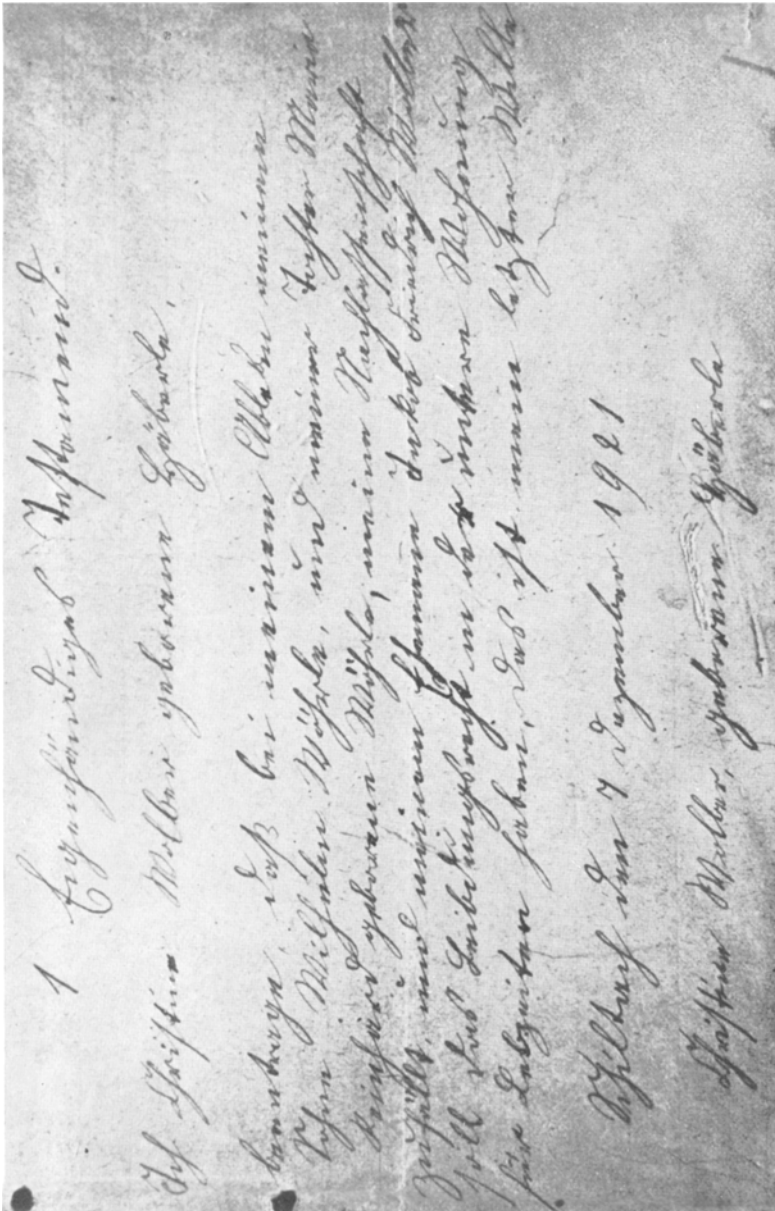 1 Eigenhändiges Testament.
Ich Christine Wolber geborene Häberle,
beantrage daß bei meinem Ableben meinem
Sohne Wilhelm Wöhrle, und meiner Tochter Marie
geborene Wöhrle, meine Nachlassenschaft
zufällt, und meinem Ehemann Jakob Friedrich Wolber
soll das Leibdingsrecht in der untere Wohnung
für Lebzeiten haben, das ist mein letzter Wille
Schiltach den 7 Dezember 1921
Christine Wolber, geborene Häberle